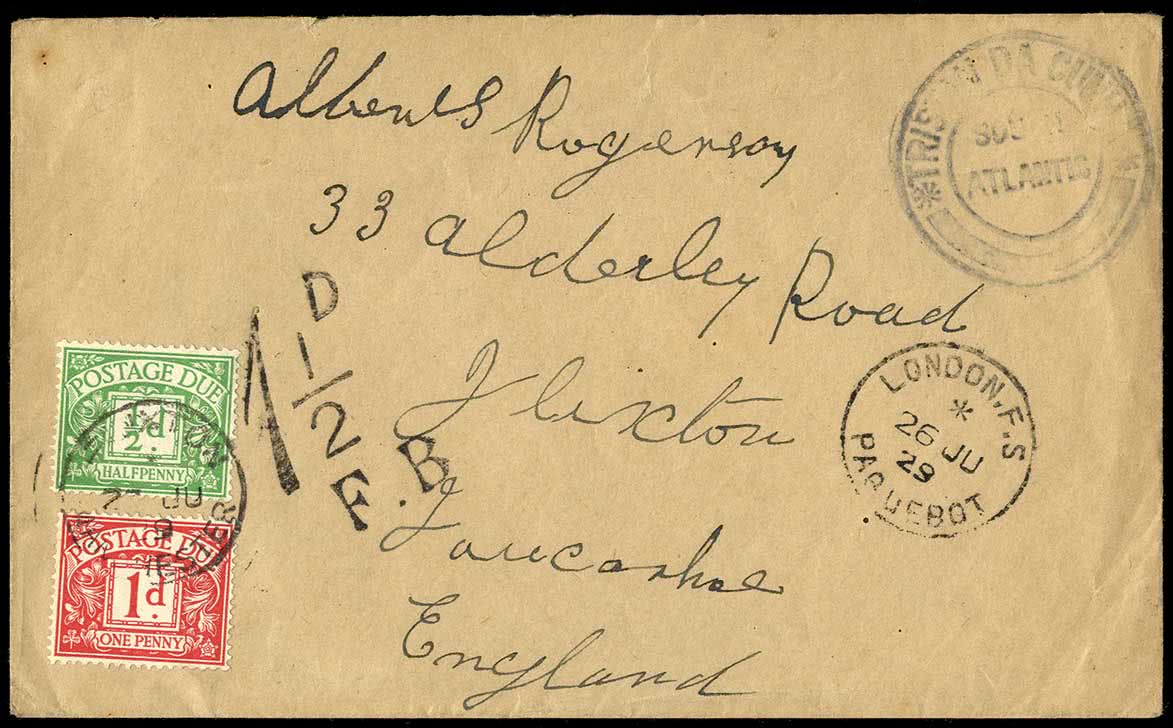 Alberts Rogerson
33 Alderley Road
Flixton
Lancashe
England
*TRISTAN DA CUNHA*
SOUTH
ATLANTIC
LONDON.F.S
*
26 JU
29
PAQUEBOT
1 1/2 D
F.B
POSTAGE DUE
½d.
HALFPENNY
POSTAGE DUE
1d.
ONE PENNY
FLIXTON
JU
9